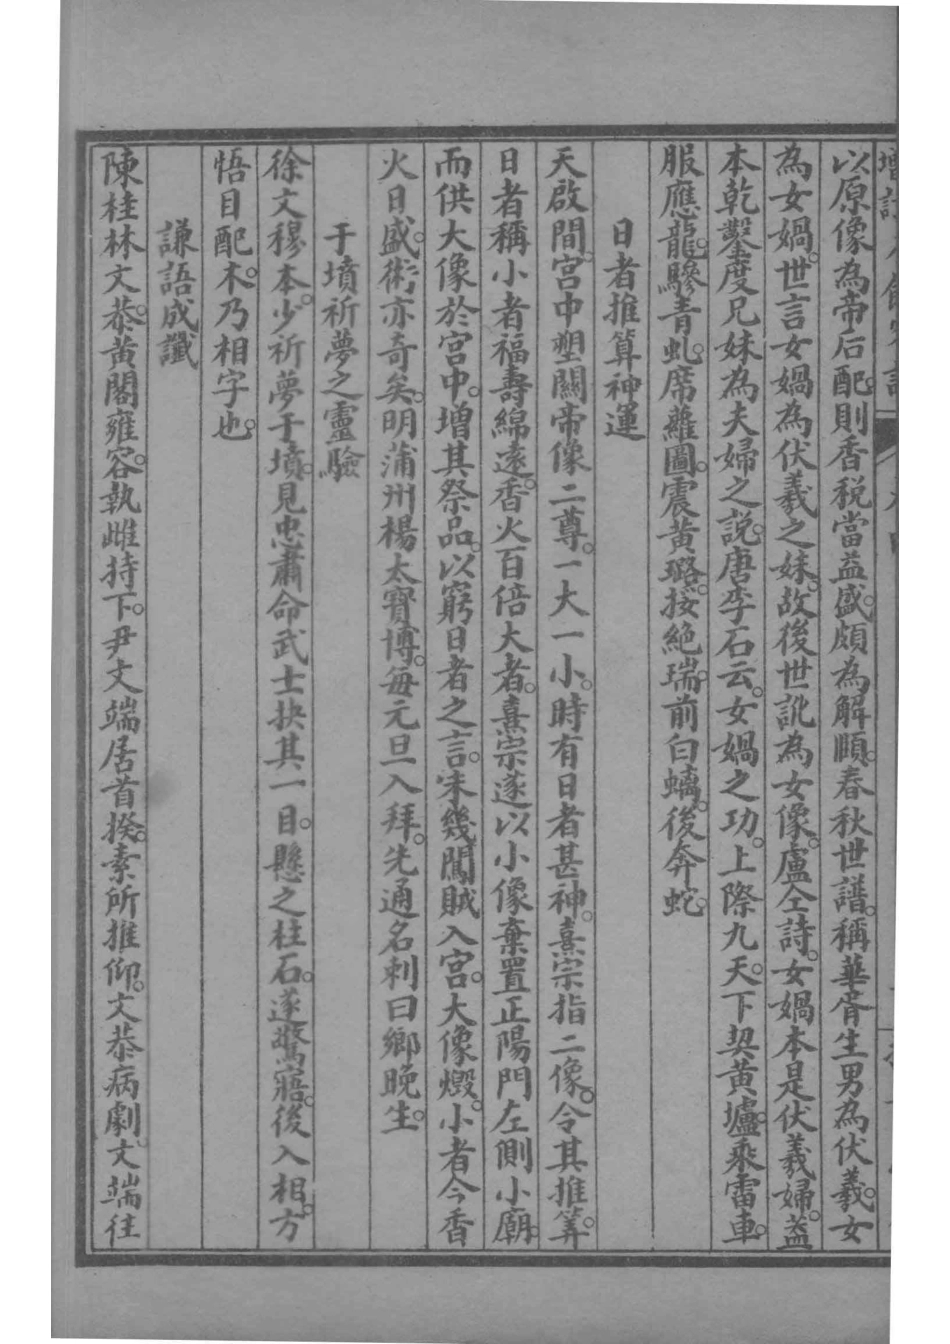 以原像為帝后配。則香税當益盛。頗為解頤。春秋世譜。稱華胥生男為伏羲。女
為女媧。世言女媧為伏羲之妹。故後世訛為女像。盧仝詩。女媧本是伏羲婦。蓋
本乾鑿度兄妹為夫婦之説。唐李石云。女媧之功。上際九天。下契黃壚。乘雷車。
服應龍。驂青虬。席蘿圖。震黃璐。援絶瑞。前白螭。後奔蛇。
日者推算神運
天啟間。宮中塑關帝像二尊。一大一小。時有日者甚神。熹宗指二像。令其推算。
日者稱小者福壽綿遠。香火百倍大者。熹宗遂以小像棄置正陽門左側小廟。
而供大像於宮中。增其祭品。以窮日者之言。未幾闖賊入宮。大像燬。小者今香
火日盛。術亦奇矣。明蒲州楊太寶博。每元旦入拜。先通名刺曰鄉晚生。
于墳祈夢之靈驗
徐文穆本。少祈夢于墳。見忠肅命武士抉其一目。懸之柱石。遂驚寤。後入相。方
悟目配木。乃相字也。
謙語成讖
陳桂林文恭。黃閣雍容。執雌持下。尹文端居首揆。素所推仰。文恭病劇。文端往